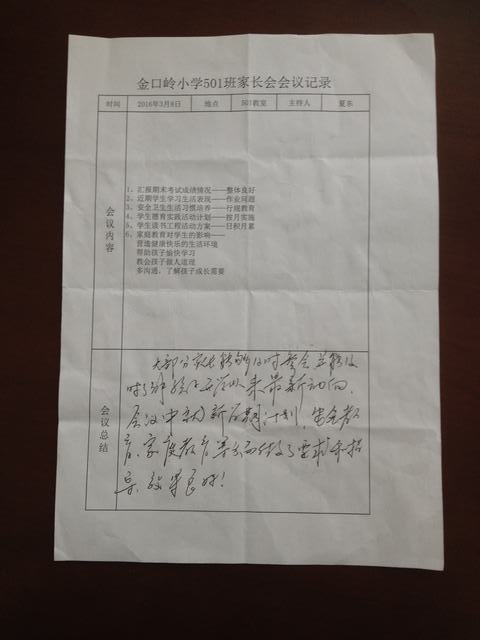 金口岭小学501班家长会会议记录
时间 2016年3月8日 地点 501教室 主持人 夏乐
会议内容
1、汇报期末考试成绩情况——整体良好
2、近期学生学习生活表现——作业问题
3、安全卫生生活习惯培养——行规教育
4、学生德育实践活动计划——按月实施
5、学生读书工程活动方案——日积月累
6、家庭教育对学生的影响——
营造健康快乐的生活环境
帮助孩子愉快学习
教会孩子做人道理
多沟通，了解孩子成长需要
会议总结
大部分家长能够及时参会并能及
时了解孩子 以来最新动向，
会议中就新学期计划，安全教
育、家庭教育等方面做了要求和指
导，效果良好！